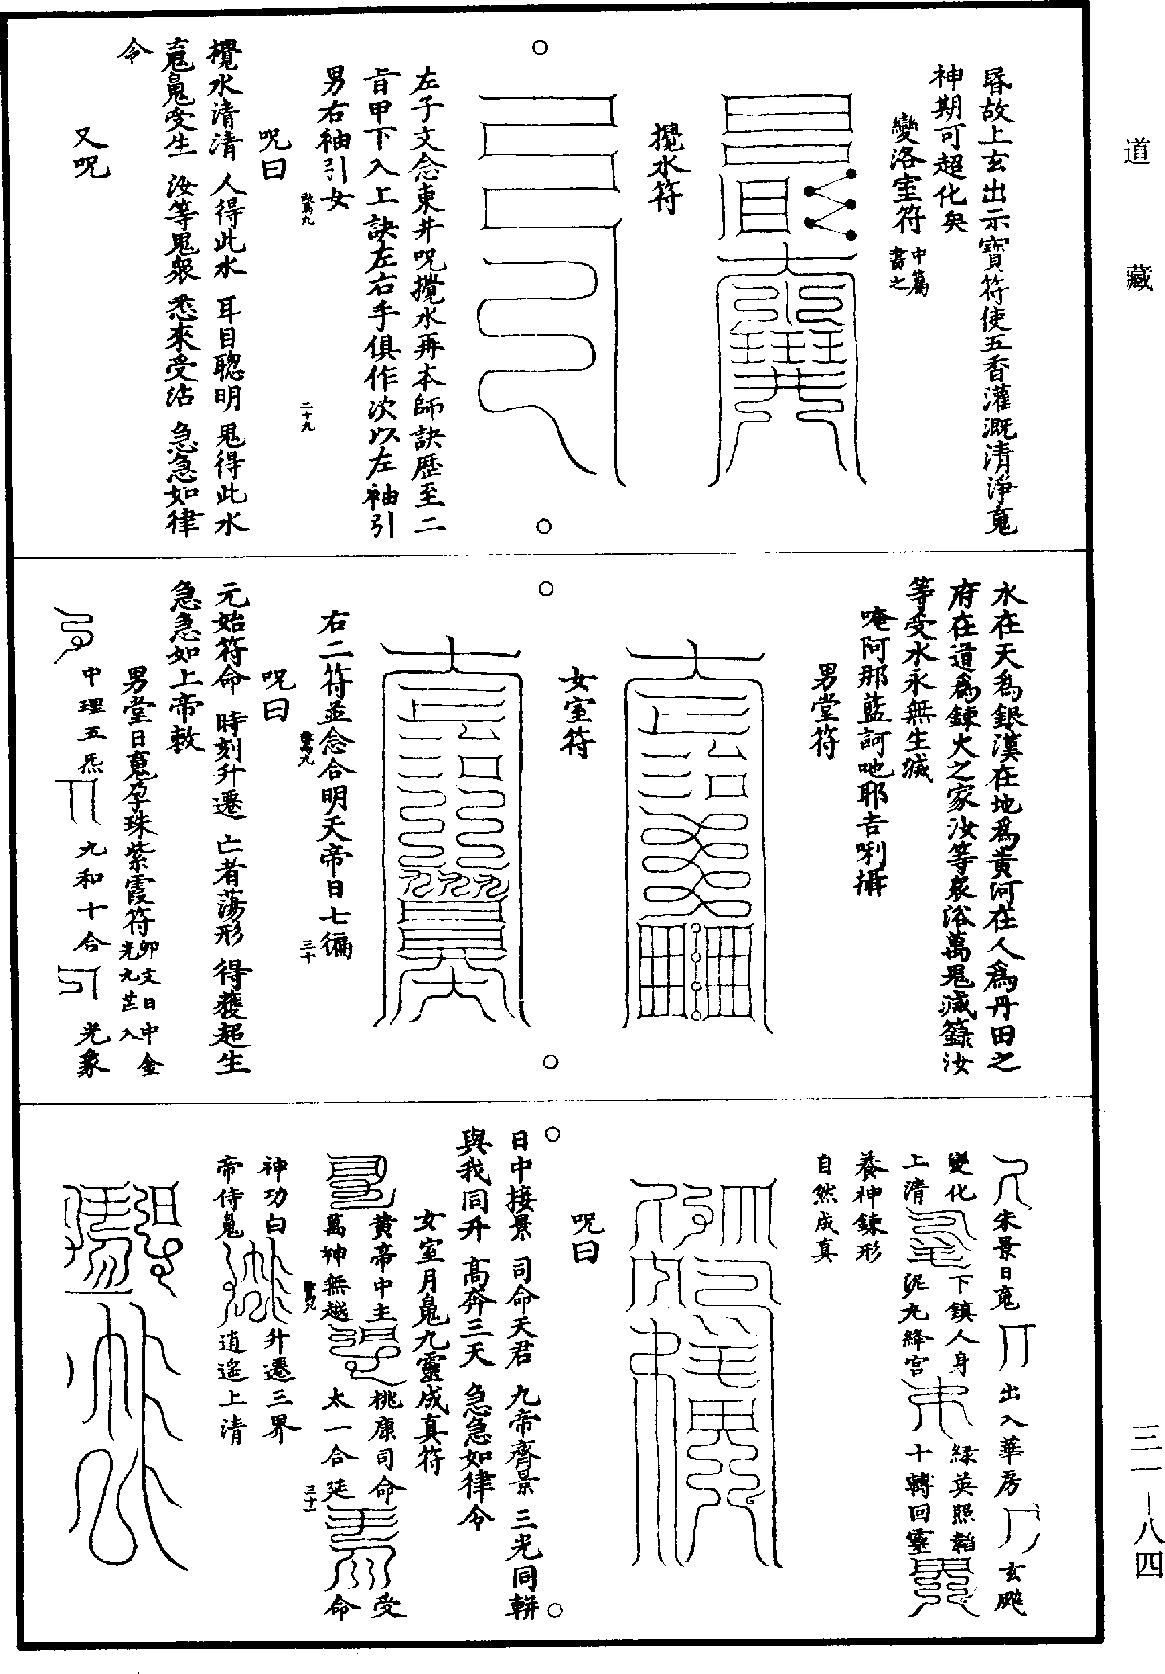 道藏
三一—八四
昏故上玄出示寶符使五香灌溉清淨䰟
神期可超化矣
變洛室符
中篇書之
攪水符
左子文念東井呪攪水再本師訣歷至二
盲甲下入上訣左右手俱作次以左袖引
男右袖引女
二十九
呪曰
攪水清清 人得此水 耳目聰明 鬼得此水
䰟鬼受生 汝等鬼衆 悉來受沾 急急如律
令
又呪
水在天爲銀漢在地爲黃河在人爲丹田之
府在道爲鍊火之家汝等衆浴萬鬼滅籙汝
等受水永無生滅
唵阿那藍訶吔耶吉唎攝
男堂符
女室符
右二符並念合明天帝日七徧
三十
呪曰
元始符命 時刻升遷 亡者蕩形 得獲超生
急急如上帝敕
男堂日䰟孕珠紫霞符
卯文日中金光九芒入
中理五炁 九和十合 光象
朱景日䰟 出入華房 玄飈
變化 下鎮人身 綠英照韜
上清 泥丸絳宮 十轉回靈
養神鍊形
自然成真
呪曰
日中接景 司命天君 九帝齊景 三光同軿
與我同升 高奔三天 急急如律令
女室月䰟九靈成真符
黃帝中主 桃康司命 受
萬神無越 太一合延 命
三十一
神功白 升遷三界
帝侍䰟 逍遙上清